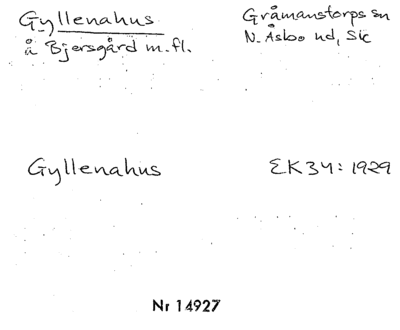 Gyllenahus
å Bjersgård m.fl.
Gråmanstorps sn
N. Åsbo hd, Sk
Gyllenahus
EK34: 1929
Nr 14927